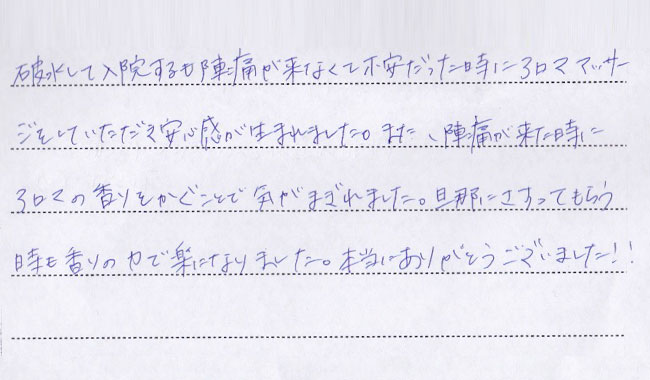 破水して入院するも陣痛が来なくて不安だった時にアロママッサー
ジをしていただき安心感が生まれました。また、陣痛が来た時に
アロマの香りをかぐことで気がまぎれました。旦那にさすってもらう
時も香りの力で楽になりました。本当にありがとうございました!!